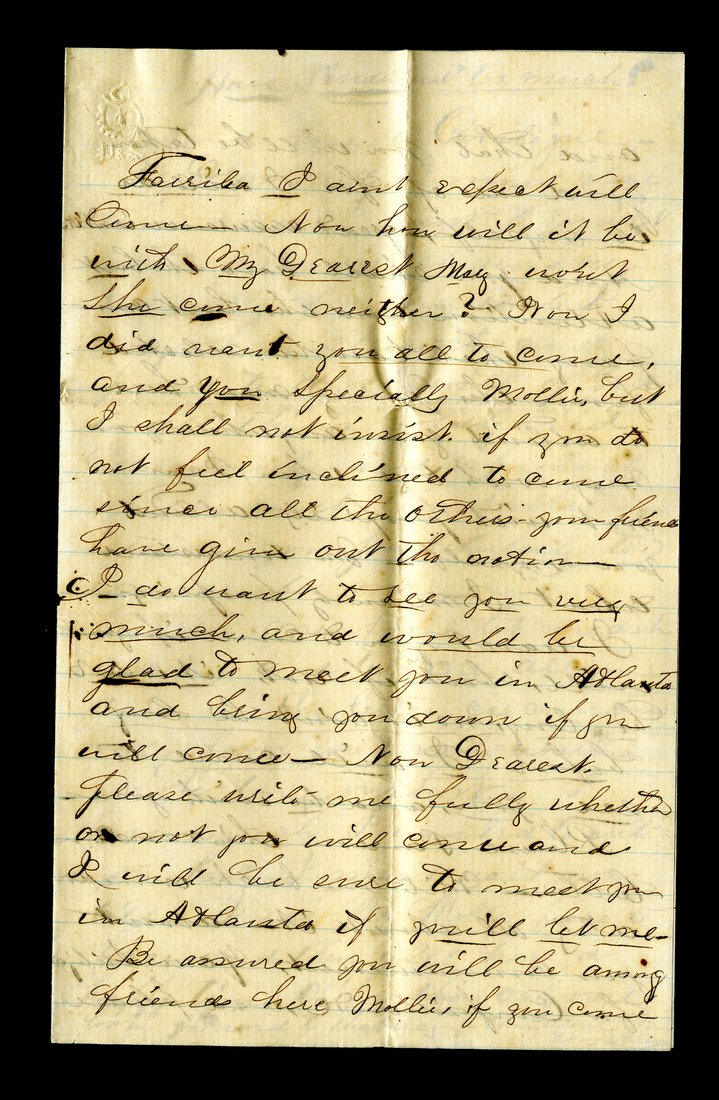 I ain't expect will
come — Now how will it be
with My Dearest May won't
she come neither? Now I
did want you all to come,
and you specially Mollie, but
I shall not insist if you do
not feel inclined to come
since all the others your friends
have give out the notion —
I do want to see you very
much, and would be
glad to meet you in Atlanta
and bring you down if you
will come — Now Dearest.
please write me fully whether
or not you will come and
I will be sure to meet you
in Atlanta if you'll let me —
Be assured you will be among
friends here Mollie, if you come